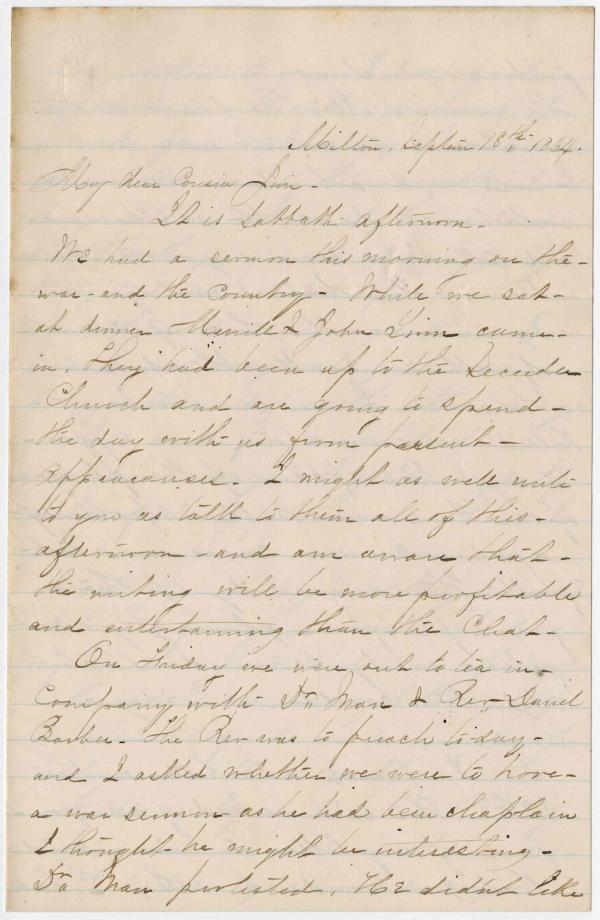 Milton, Septem 18th 1864.
My dear Cousin
It is Sabbath afternoon -
We had a sermon this morning on the -
war - and the Country - While we sat -
at dinner Merrill & John Linn came -
in. They had been up to the Seceder
Church and are going to spend -
the day with us from present -
appearances. I might as well write
to you as talk to them all of this -
afternoon - and am aware that -
the writing will be more profitable
and entertaining than the Chat -
On Friday we were out to tea in -
Company with Dr Man & Rev Daniel
Barber - The Rev was to preach to-day -
and I asked whether we were to have -
a war sermon as he had been chaplain
I thought he might be interesting -
Dr Man protested. He didn't like